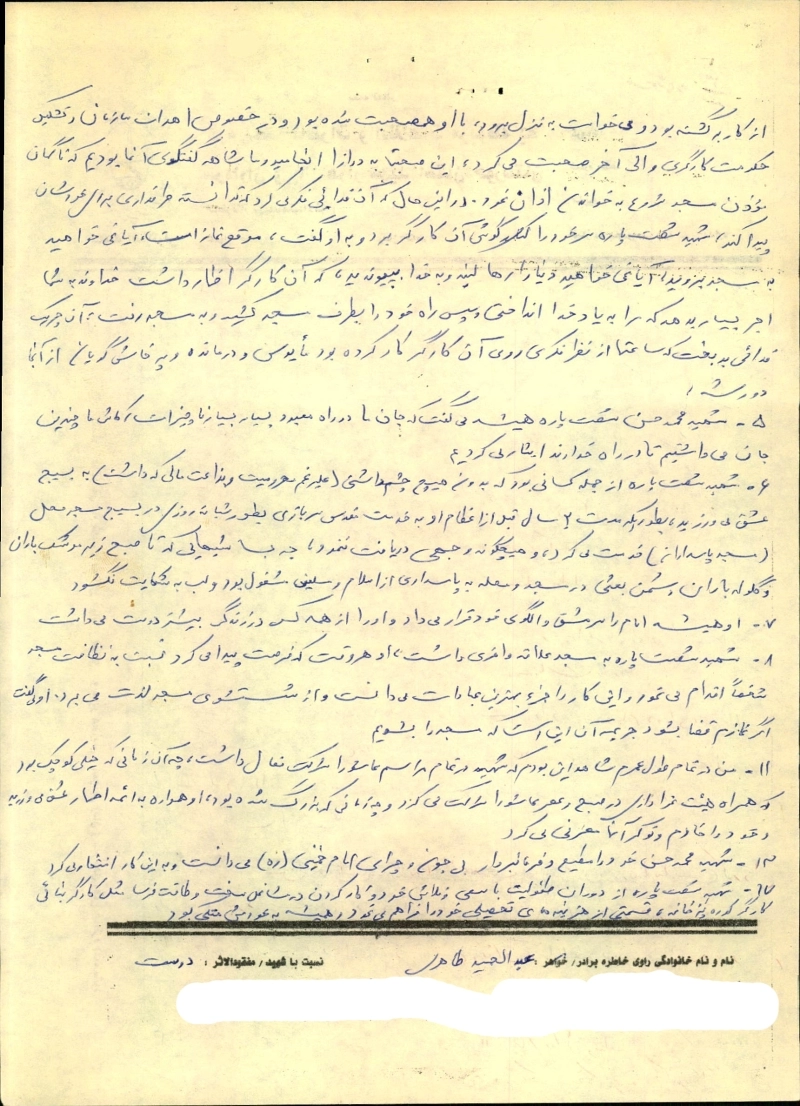 از کار برگشته بود و می‌خواست به منزل برود، با او همصحبت شده بود و در خصوص اهداف سازمان و تشکیل
حکومت کارگری و الی آخر صحبت می‌کرد، این صحبتها به درازا انجامید و ما شاهد گفتگوی آنها بودیم که ناگهان
مؤذن مسجد شروع به خواندن اذان نمود. در این حال که آن فدائی فکر می‌کرد که توانسته طرفداری برای خودشان
پیدا کند، شهید شفت پاره سر خود را کنار گوش آن کارگر برد و به او گفت، موقع نماز است، آیا نمی خواهید
به مسجد بروید، آیا نمی خواهید و نیازها کنید و به خدا بپیوندید، که آن کارگر اظهار داشت خداوند به شما
اجر بسیار بدهد که مرا به یاد خدا انداختی و سپس راه خود را بطرف مسجد کشید و به مسجد رفت، آن چریک
فدائی بدبخت که ساعتها از نظر فکری روی آن کارگر کار کرده بود مأیوس و درمانده و پرخاش گویان از آنجا
دور شد.
۵- شهید محمد حسن شفت پاره همیشه می گفت که جان ما در راه معبود بسیار بسیار ناچیز است، کاش ما چندین
جان می داشتیم تا در راه خداوند ایثار می کردیم
۶- شهید شفت پاره از جمله کسانی بود که بدون هیچ چشمداشتی (علیرغم محرومیت و بضاعت مالی که داشت) به بسیج
عشق می ورزید، بطوریکه مدت ۳ سال قبل از اعزام او به خدمت مقدس سربازی بطور شبانه روزی در بسیج مسجد محل
(مسجد پاسداران) خدمت می کرد، و هیچگونه وجهی دریافت ننمود، چه بسا شبهایی که تا صبح زیر موشک باران
و گلوله باران دشمن بعثی در مسجد و محله به پاسداری از اسلام و مسلمین مشغول بود و لب به شکایت نگشود
۷- او همیشه امام را سرمشق و الگوی خود قرار می داد و او را از همه کس در زندگی بیشتر دوست می داشت
۸- شهید شفت پاره به مسجد علاقه وافری داشت، او هر وقت که فرصت پیدا می کرد نسبت به نظافت مسجد
شخصاً اقدام می نمود و این کار را جزء بهترین عبادات می دانست و از شستشوی مسجد لذت می برد. او می گفت
اگر نمازم قضا بشود جریمه آن این است که مسجد را بشویم
۱۱- من در تمام طول عمرم شاهد این بودم که شهید در تمام مراسم عاشورا شرکت فعال داشت، چه آن زمانی که خیلی کوچک بود
که همراه هیئت عزاداری در صبح و عصر عاشورا شرکت می کرد و چه زمانی که بزرگ شده بود، او همواره به ائمه اطهار عشق می ورزید
و خود را خادم و نوکر آنها معرفی می کرد
۱۳- شهید محمد حسن خود را مطیع و فرمانبردار بی چون و چرای امام خمینی (ره) می دانست و به این کار افتخار می کرد
۱۷- شهید شفت پاره از دوران طفولیت با سعی و تلاش خود و کار کردن در مشاغل سخت و طاقت فرسا مثل کارگر بنائی
کارگر کوره پزخانه، قسمتی از هزینه های تحصیلی خود را فراهم می نمود و همیشه به خودش متکی بود
نام و نام خانوادگی راوی خاطره برادر/ خواهر: عبدالحمید طاهری نسبت با شهید/ مفقودالاثر: دوست